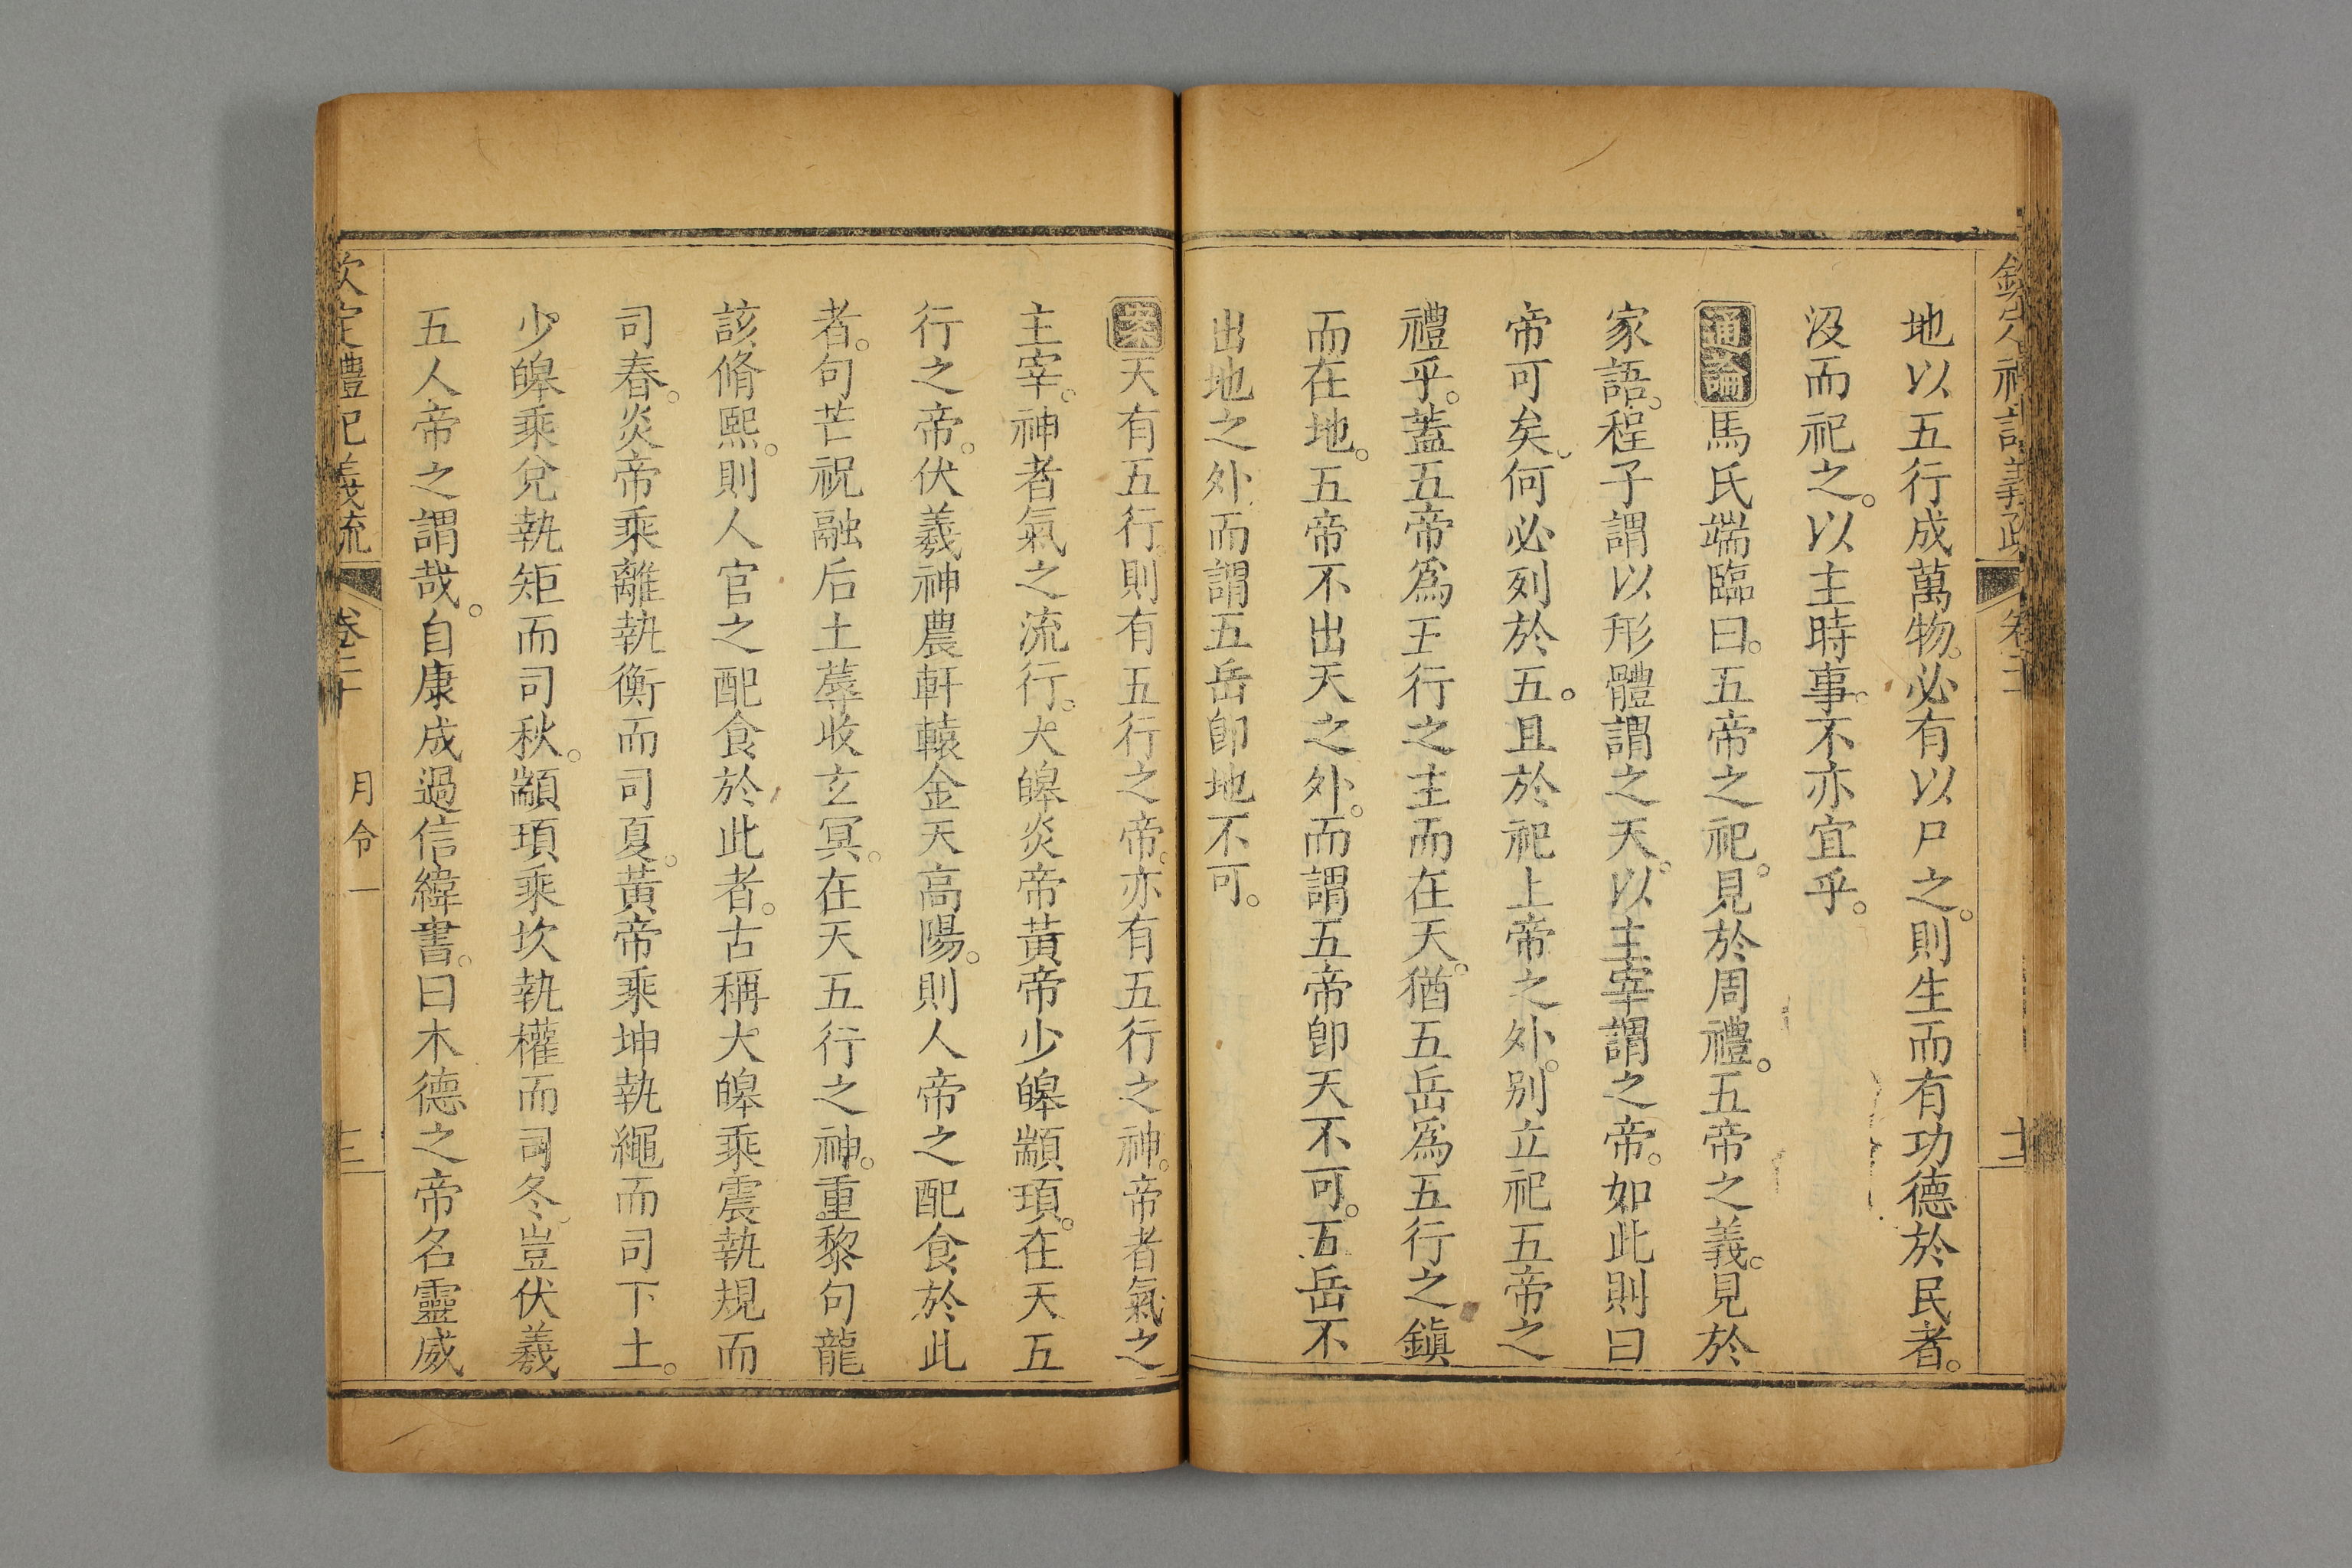 地以五行成萬物。必有以尸之。則生而有功德於民者。
沒而祀之。以主時事。不亦宜乎。
通論馬氏端臨曰。五帝之祀。見於周禮。五帝之義。見於
家語。程子謂以形體謂之天。以主宰謂之帝。如此則曰
帝可矣。何必列於五。且於祀上帝之外。別立祀五帝之
禮乎。蓋五帝爲五行之主而在天。猶五岳爲五行之鎭
而在地。五帝不出天之外。而謂五帝卽天不可。五岳不
出地之外。而謂五岳卽地不可。
案天有五行。則有五行之帝。亦有五行之神。帝者氣之
主宰。神者氣之流行。大皞炎帝黃帝少皞顓頊。在天五
行之帝。伏羲神農軒轅金天高陽。則人帝之配食於此
者。句芒祝融后土蓐收玄冥。在天五行之神。重黎句龍
該脩熙。則人官之配食於此者。古稱大皞乘震執規而
司春。炎帝乘離執衡而司夏。黃帝乘坤執繩而司下土。
少皞乘兌執矩而司秋。顓頊乘坎執權而司冬。豈伏羲
五人帝之謂哉。自康成過信緯書。曰木德之帝名靈威
欽定禮記義疏
卷二十
月令一
三